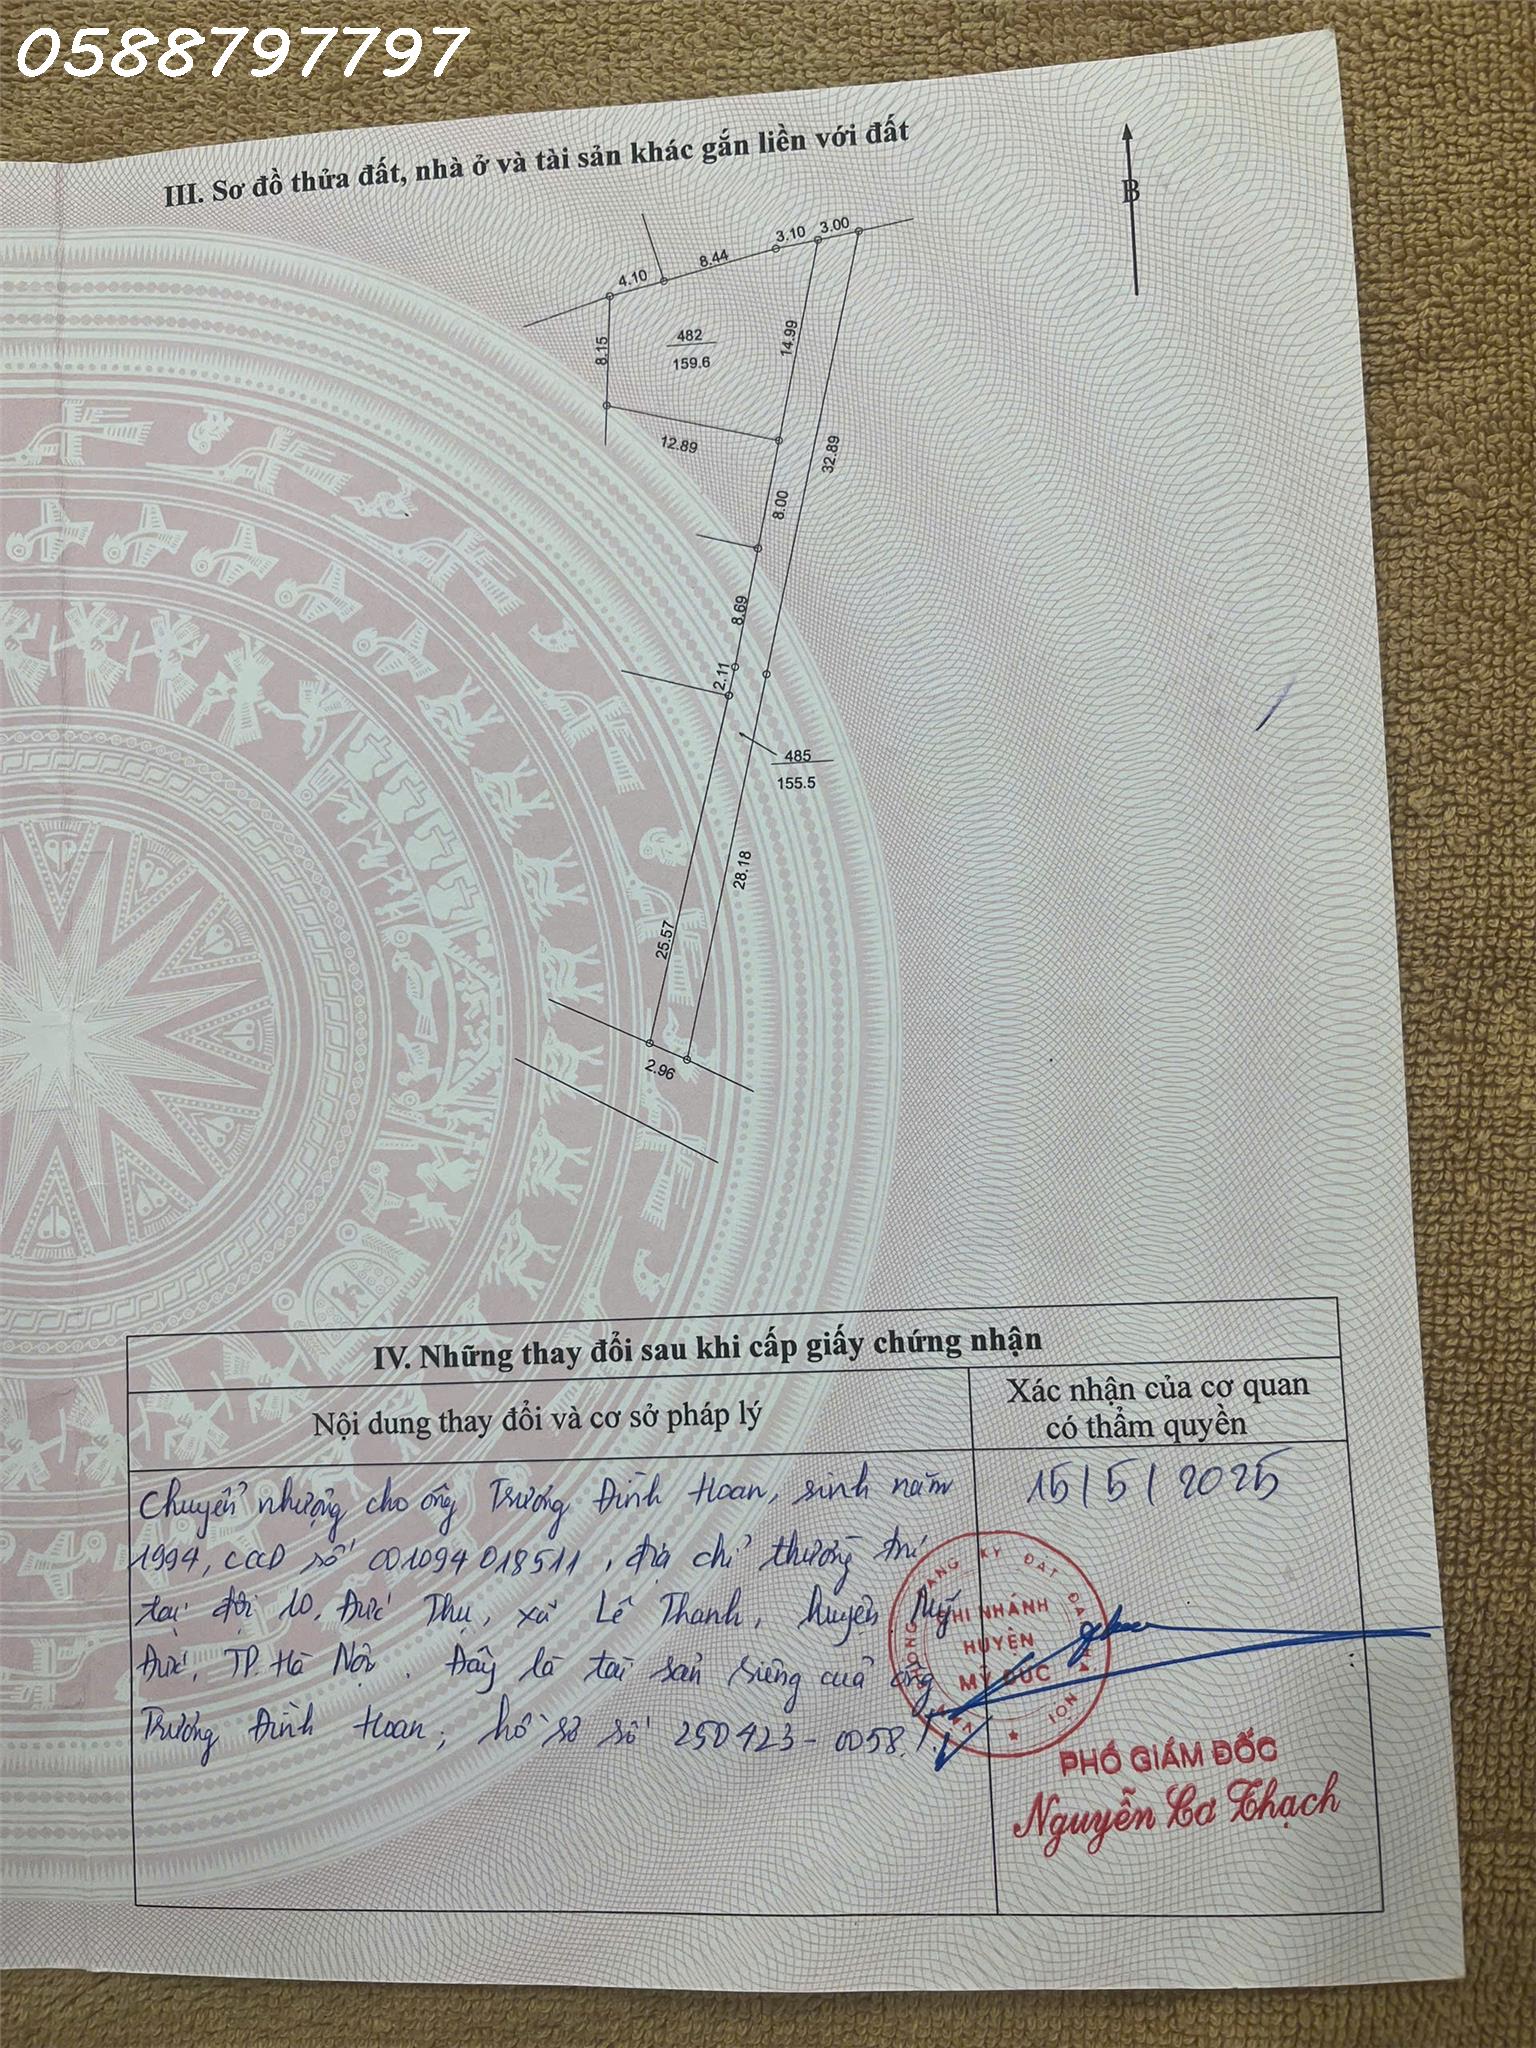 0588797797
III. Sơ đồ thửa đất, nhà ở và tài sản khác gắn liền với đất
B
4.10
8.44
3.10
3.00
8.15
482
159.6
14.99
12.89
32.89
8.00
8.69
2.11
485
155.5
28.18
25.57
2.96
IV. Những thay đổi sau khi cấp giấy chứng nhận
Nội dung thay đổi và cơ sở pháp lý
Xác nhận của cơ quan
có thẩm quyền
Chuyển nhượng cho ông Trương Đình Hoan, sinh năm
1994, CCCD số 001094018511, địa chỉ thường trú
tại đội 10, Đức Thụ, xã Lê Thanh, huyện Mỹ
Đức, TP. Hà Nội. Đây là tài sản riêng của ông
Trương Đình Hoan; hồ sơ số 250423-0058./.
15/5/2025
CHI NHÁNH
HUYỆN
MỸ ĐỨC
PHÓ GIÁM ĐỐC
Nguyễn Cơ Thạch